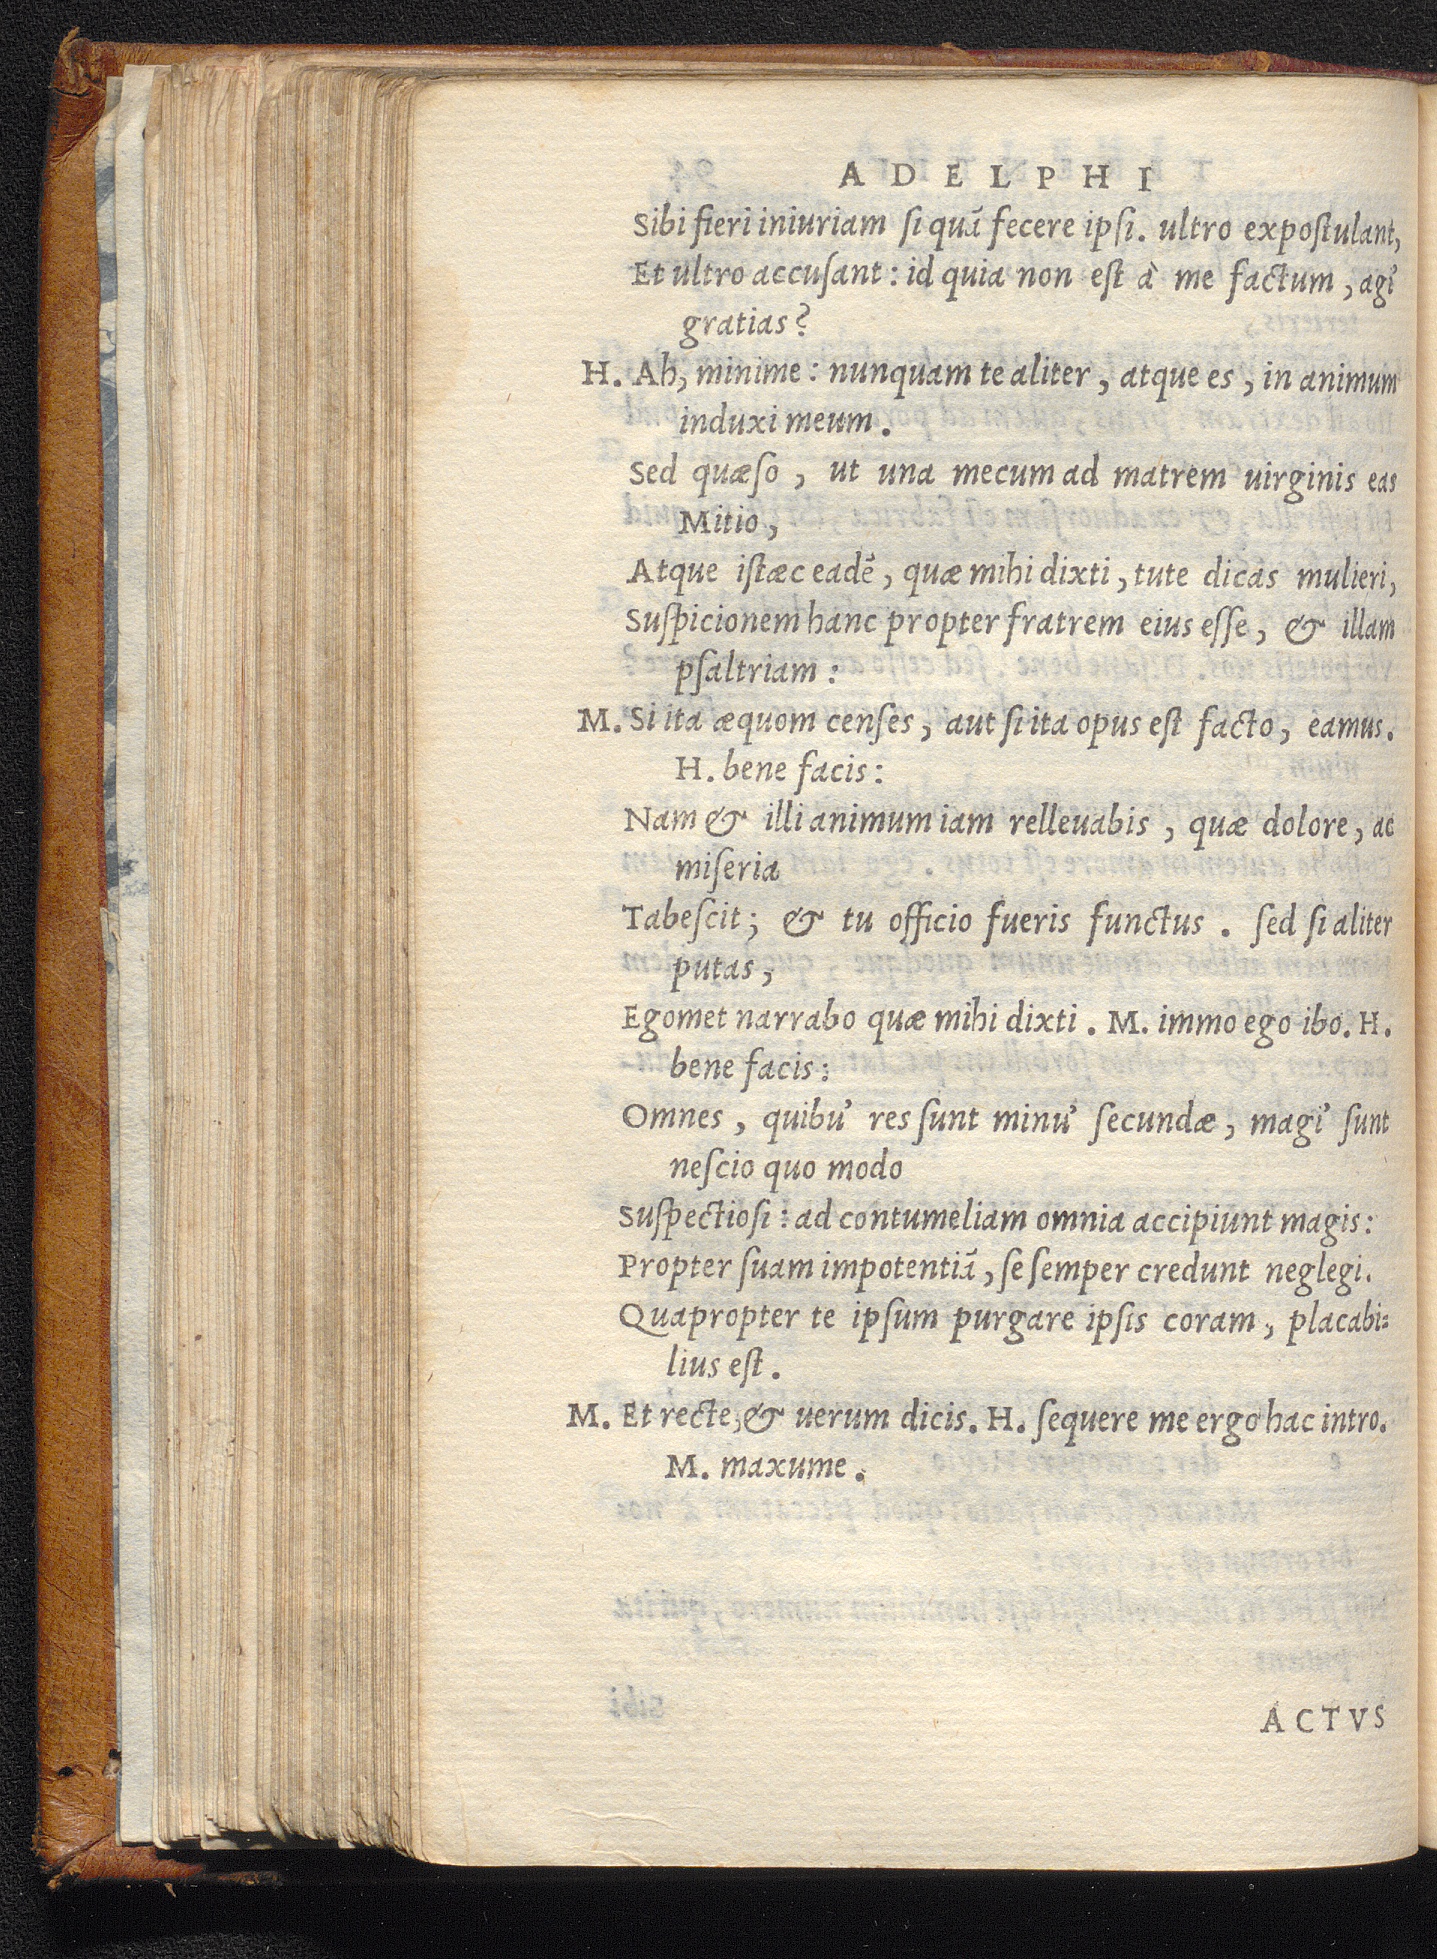 ADELPHI
Sibi fieri iniuriam si quã fecere ipsi. ultro expostulant,
Et ultro accusant: id quia non est à me factum, agi'
gratias?
H. Ah, minime: nunquam te aliter, atque es, in animum
induxi meum.
Sed quæso, ut una mecum ad matrem uirginis eas
Mitio,
Atque istæc eadẽ, quæ mihi dixti, tute dicas mulieri,
Suspicionem hanc propter fratrem eius esse, & illam
psaltriam:
M. Si ita æquom censes, aut si ita opus est facto, eamus.
H. bene facis:
Nam & illi animum iam relleuabis, quæ dolore, ac
miseria
Tabescit; & tu officio fueris functus. sed si aliter
putas,
Egomet narrabo quæ mihi dixti. M. immo ego ibo. H.
bene facis:
Omnes, quibu' res sunt minu' secundæ, magi' sunt
nescio quo modo
Suspectiosi: ad contumeliam omnia accipiunt magis:
Propter suam impotentiã, se semper credunt neglegi.
Quapropter te ipsum purgare ipsis coram, placabi=
lius est.
M. Et recte, & uerum dicis. H. sequere me ergo hac intro.
M. maxume.
ACTVS